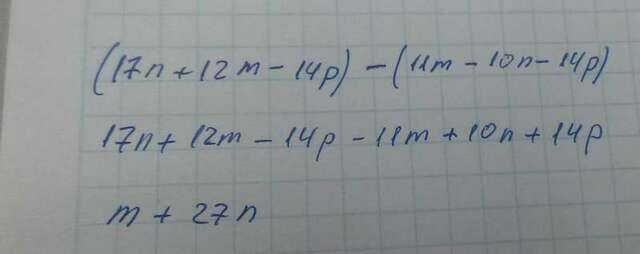 (17n + 12m - 14p) - (11m - 10n - 14p)
17n + 12m - 14p - 11m + 10n + 14p
m + 27n